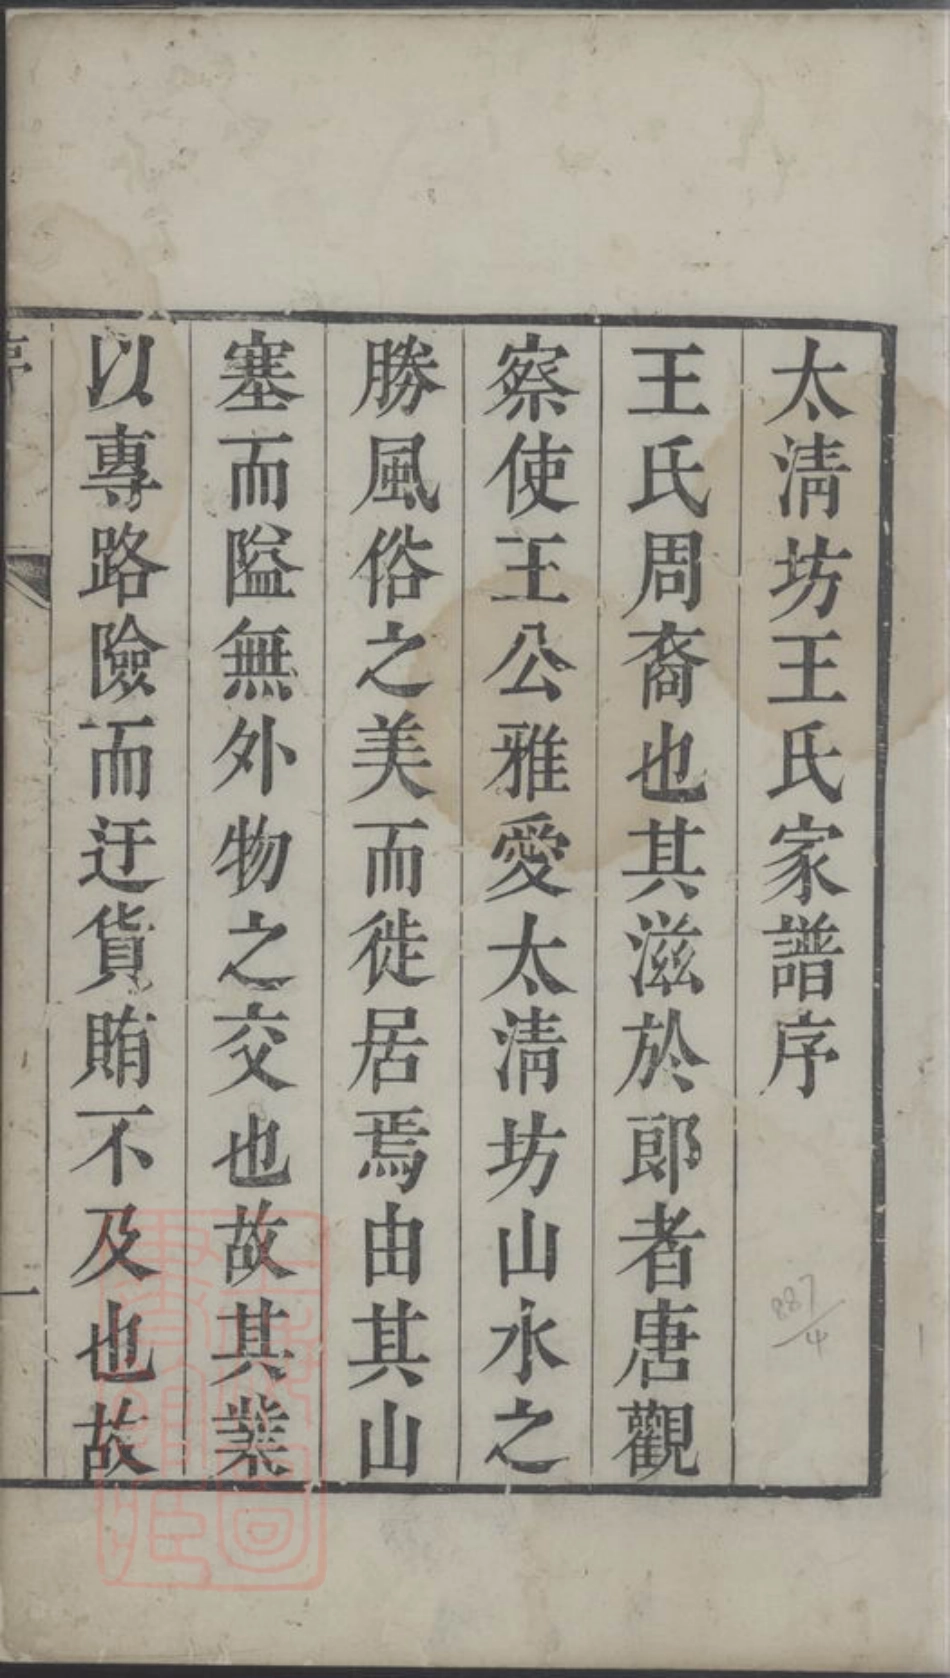 太淸坊王氏家譜序
王氏周裔也其滋於郎者唐觀
察使王公雅愛太淸坊山水之
勝風俗之美而徙居焉由其山
塞而隘無外物之交也故其業
以專路險而迂貨賄不及也故
序
一
887/4